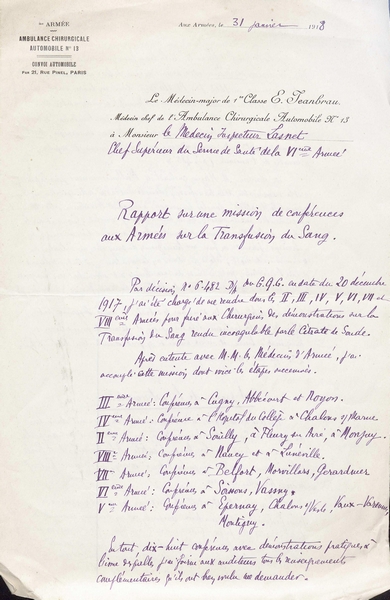 e ARMÉE
AMBULANCE CHIRURGICALE
AUTOMOBILE N° 13
CONVOI AUTOMOBILE
PAR 25, RUE PINEL, PARIS
Aux Armées, le 31 janvier 1918
Le Médecin-major de 1re Classe E. Jeanbrau
Médecin chef de l'Ambulance Chirurgicale Automobile N° 13
à Monsieur le Médecin Inspecteur Lasnet
Chef Supérieur du Service de Santé de la VIème Armée
Rapport sur une mission de conférences
aux Armées sur la Transfusion du Sang.
Par décision N° 6.482 D/ du G.Q.G. en date du 20 décembre
1917, j'ai été chargé de me rendre dans les II, III, IV, V, VI, VII et
VIIIème Armées pour faire aux Chirurgiens des démonstrations sur la
Transfusion du Sang rendu incoagulable par le Citrate de Soude.
Après entente avec M.M. les Médecins d'Armée, j'ai
accompli cette mission dont voici les étapes
IIIème Armée: Conférences à Cugny, Abbécourt et Noyon.
IVème Armée: Conférence à l'Hôpital du Collège à Chalons s/Marne
IIème Armée: Conférences à Souilly, à Fleury sur Aire, à
VIIIème Armée: Conférences à Nancy et à Lunéville.
VIIe Armée, Conférences à Belfort, Morvillars, Gerardmer
VIème Armée: Conférences à Soissons, Vasseny.
Ve Armée: Conférences à Epernay, Chalons s/Vesle, Vaux-Varennes
Montigny.
En tout, dix-huit conférences avec démonstrations pratiques, à
l'issue desquelles j'ai fourni aux auditeurs tous les renseignements
complémentaires qu'ils ont bien voulu me demander.